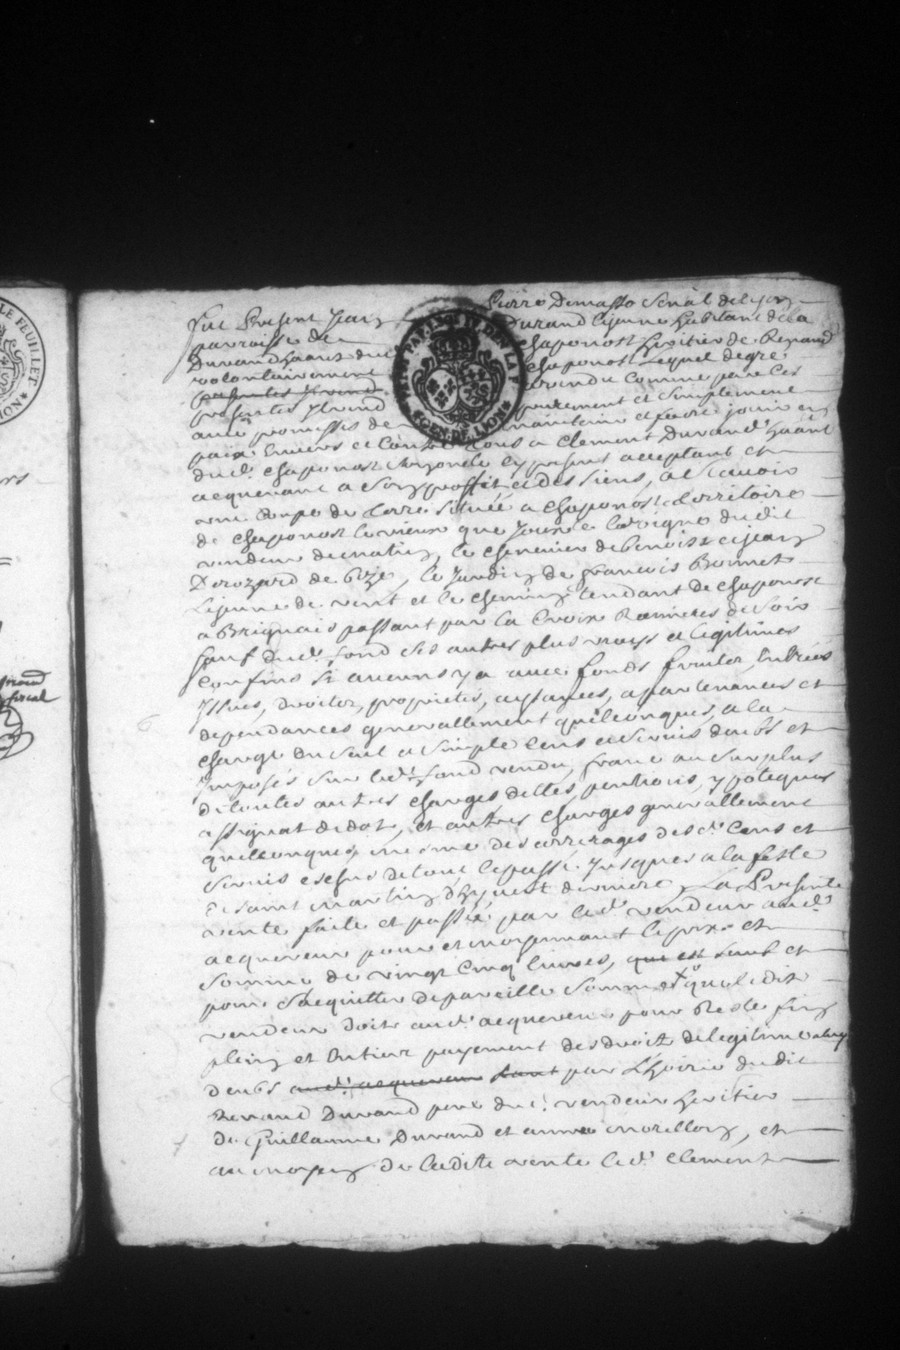 Pierre Demasso Senal de lyon
fut Present Jean Durand lejeune habitant de la
parroisse de chaponost heritier de Renaud
Durand vivant dud. chaponost Lequel de gré
volontairement vendu comme par ces
presentes Ilvend purement et simplement
avec promesses de maintenir et faire jouir en
paix Envers et Contre Tous a Clement Durand
dud. chaponost cy present acceptant et
acquerant a son proffit et des siens, a Scavoir
une coupe de terre située a chaponost territoire
de chaponost le vieux que Jouxte la vigne du dit
vendeur de matin, le chemin de benoist et jean
Dorozard de bize, le Jardin de francois Bonnet
Lejeune de vent et le chemin tendant de chaponost
a Brignais passant par la Croix de Soir
sauf dud. fond ses autres plus vrays et legitimes
confins si aucuns y a avec fonds fruits, Entrées
Issues, droits, proprietés, aysances, apartenances et
dependances generallement quelconques, a la
charge du seul et simple Cens et servis deubs et
Imposés sur led. fond vendu, franc au surplus
de toutes autres charges debtes, pentions, ypoteques
assignat de dot, et autres charges generallement
quelconques, mesme des arrerages desd. Cens et
servis escheus de tout le passé Jusques a la feste
st saint martin d'hyver derniere, La Presente
vente faite et passée par led. vendeur aud.
acquereur pour et moyennant le prix et
somme de vingt Cinq livres, et
pour S'acquitter de pareille somme que ledit
vendeur doit aud. acquereur pour Reste fin
plein et Entier payement des droits de legitime
deubs aud. acquereur par L'hoirie du dit
Renaud Durand pere dud. vendeur heritier
de Guillaume Durand et anne morillon, et
au moyen de ladite vente led. Clement
LE FEUILLET
GEN. DE LYON
fiscal